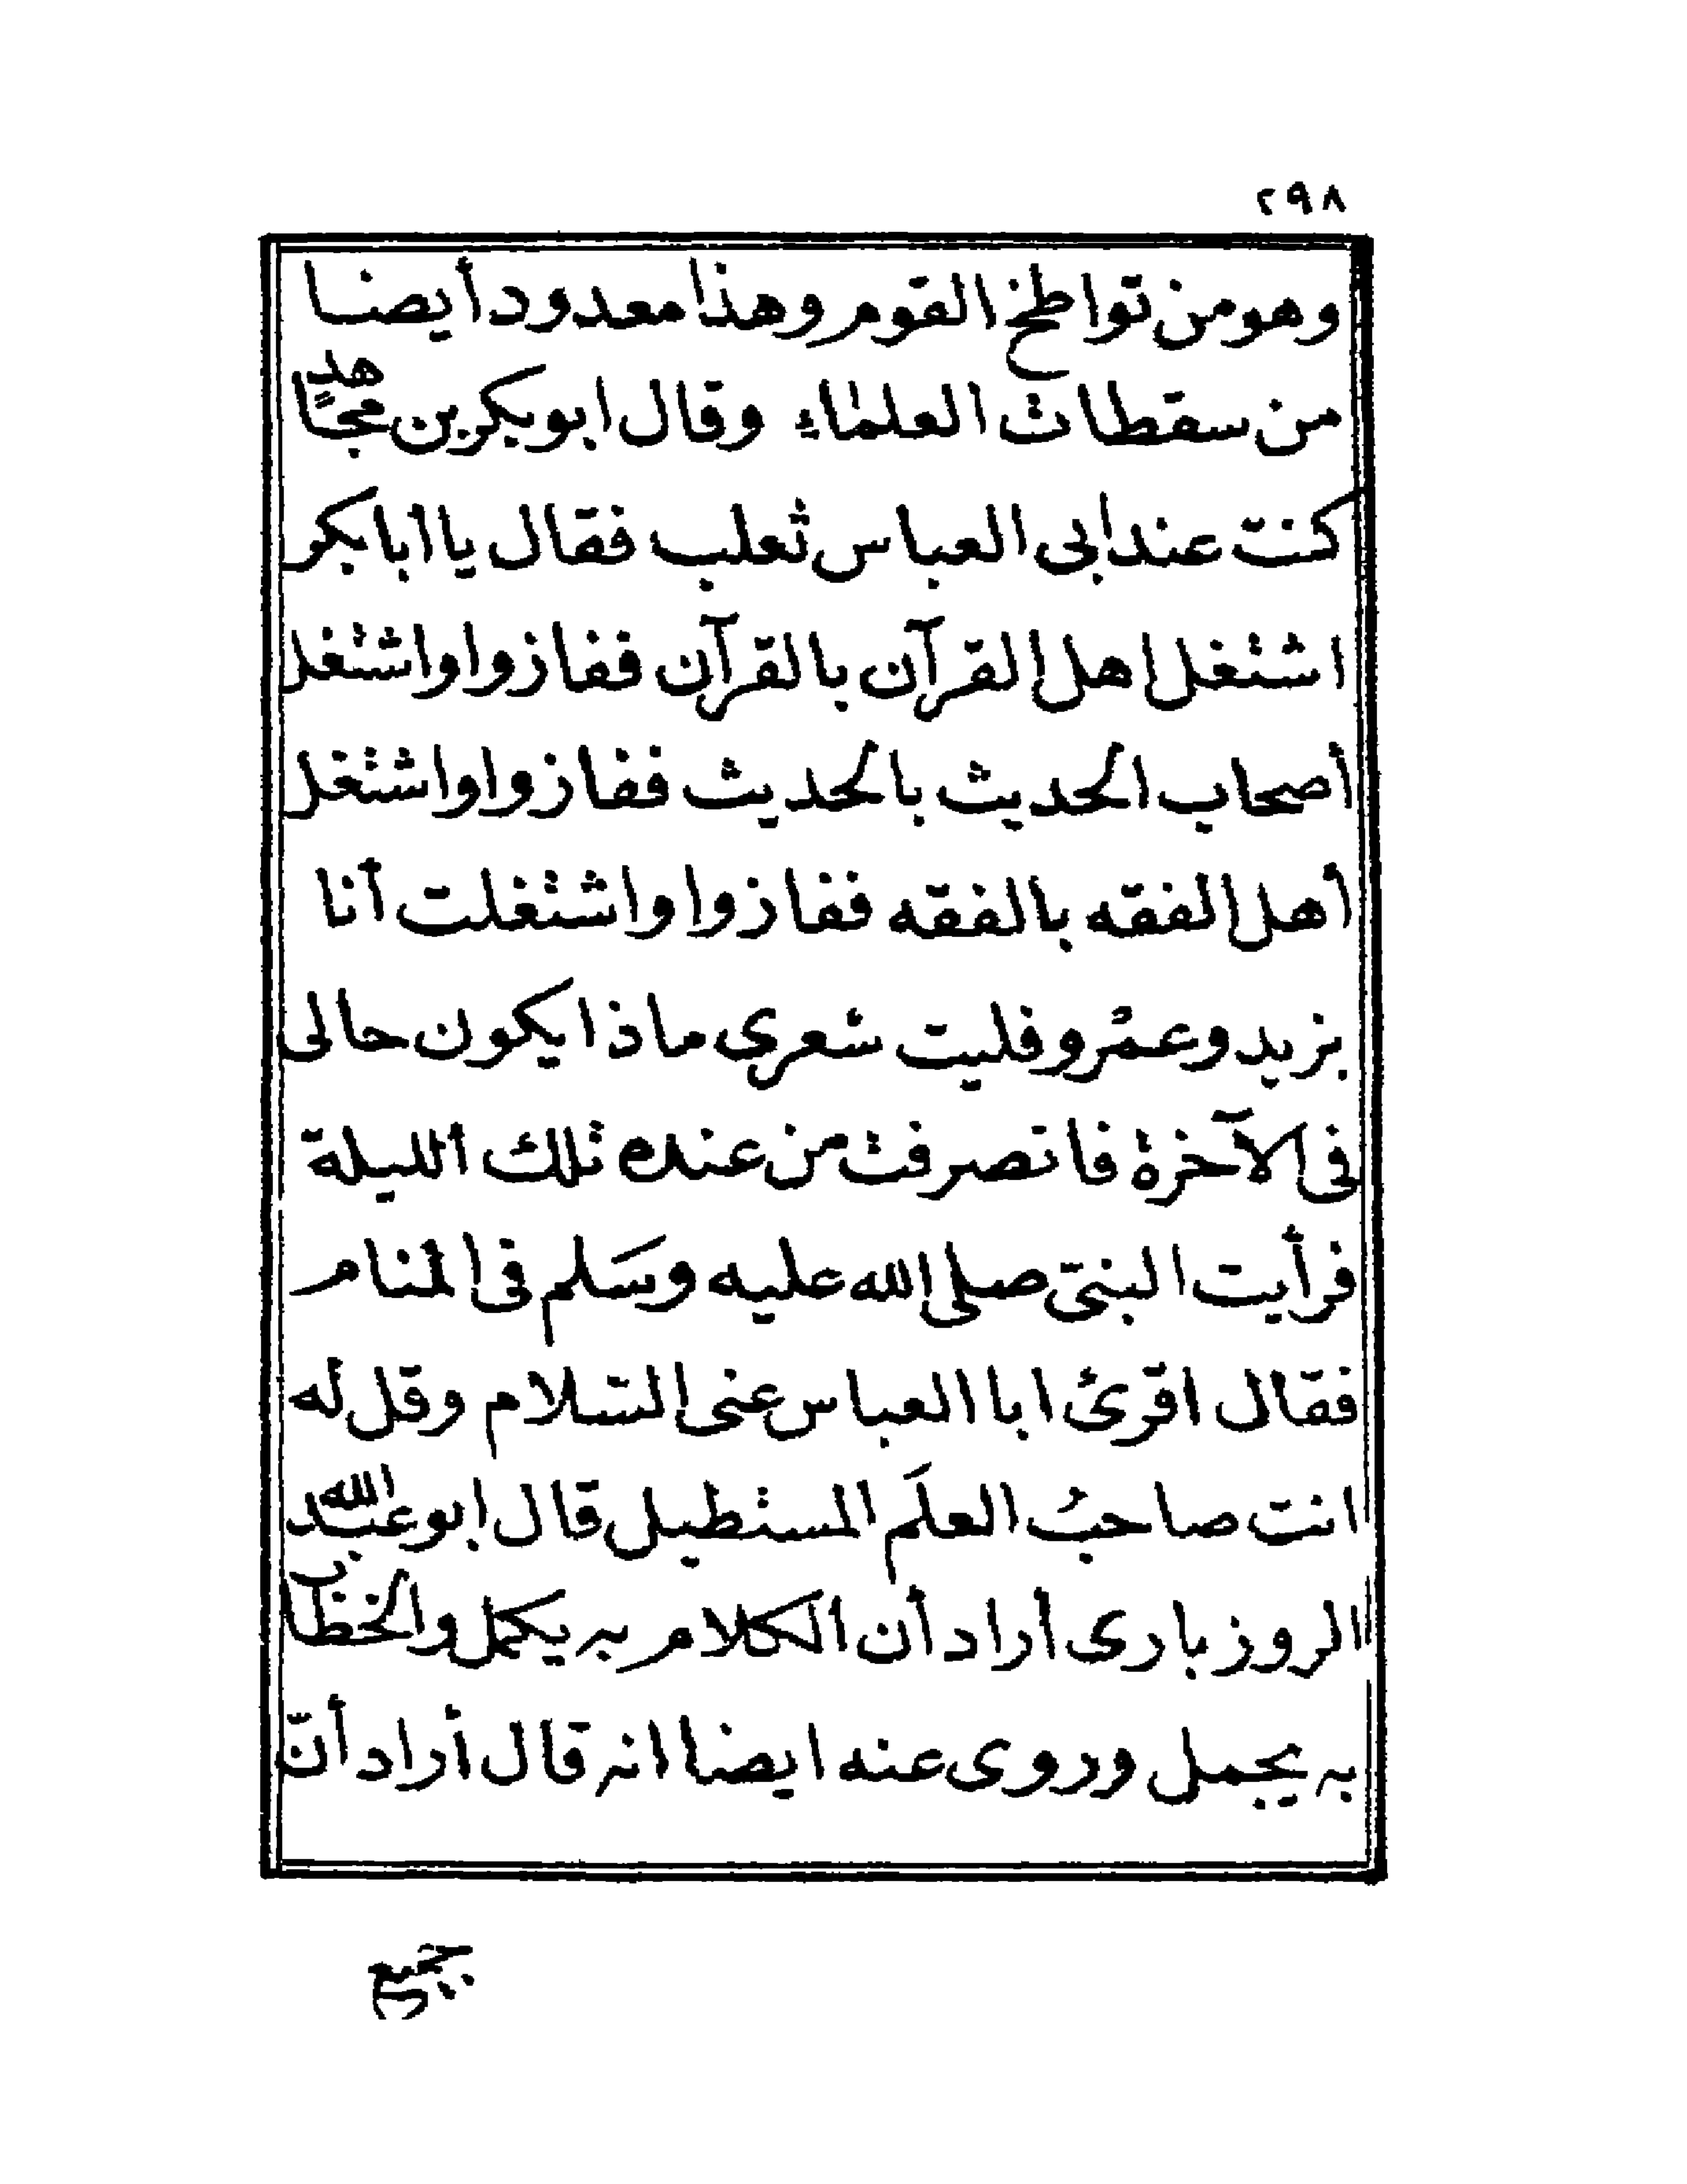 ٢٩٨
وهو من تواطخ القوم وهذا معدود أيضا
من سقطات العلماء وقال ابو بكر بن مجاهد
كنت عند ابى العباس ثعلب فقال يا ابا بكر
اشتغل اهل القرآن بالقرآن ففازوا واشتغل
أصحاب الحديث بالحديث ففازوا واشتغل
أهل الفقه بالفقه ففازوا واشتغلت أنا
بزيد وعمْرو فليت شعرى ماذا يكون حالى
فى الآخرة فانصرفت من عنده تلك الليلة
فرأيت النبىّ صلى الله عليه وسَلم فى المنام
فقال اقرئ ابا العباس عنى السّلام وقل له
انت صاحبُ العلَم المستطيل قال ابو عبد الله
الروزبارى أراد أن الكلام به يكمل والخطاب
به يجمل وروى عنه ايضا انه قال أراد أنّ
جميع